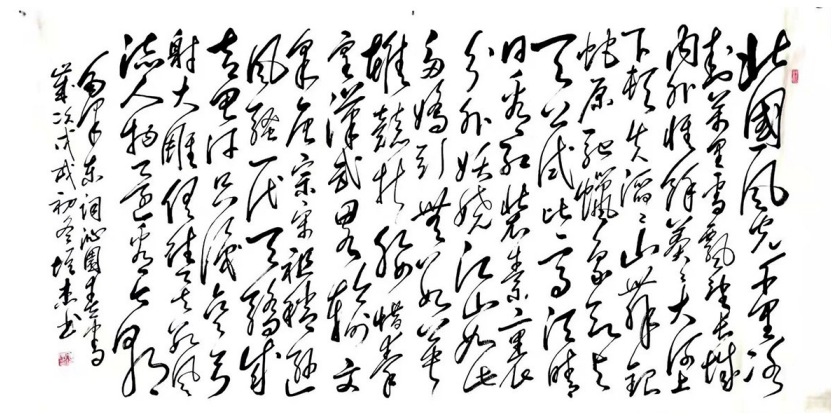 北國風光千里冰
封萬里雪飄望长城
内外惟餘莽〻大河上
下頓失滔〻山舞銀
蛇原馳蠟象欲与
天公試比高須晴
日看紅裝素裹
分外妖嬈江山如此
多嬌引無數英
雄競折腰惜秦
皇漢武略輸文
采唐宗宋祖稍遜
風騷一代天驕成
吉思汗只識彎弓
射大雕俱往矣數風
流人物還看今朝
毛澤东詞沁園春雪
歲次戊戌初冬杰书